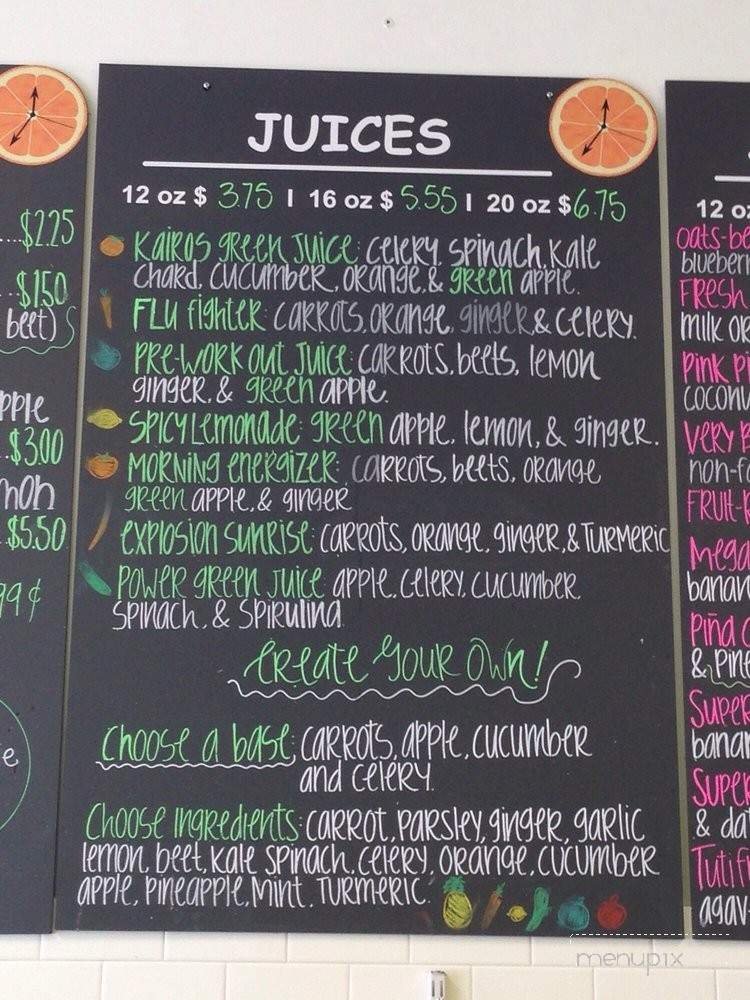 JUICES
12 oz $ 3.75 | 16 oz $ 5.55 | 20 oz $ 6.75
Kairos green Juice: celery, spinach, kale
chard, cucumber, orange, & green apple.
Flu fighter: carrots, orange, ginger & celery.
Pre-work out Juice: carrots, beets, lemon
ginger, & green apple.
Spicy Lemonade: green apple, lemon, & ginger.
Morning energizer: carrots, beets, orange
green apple, & ginger
explosion sunrise: carrots, orange, ginger, & Turmeric
Power green Juice: apple, celery, cucumber,
spinach, & spirulina
Create Your Own!
Choose a base: carrots, apple, cucumber
and celery.
Choose Ingredients: carrot, parsley, ginger, garlic
lemon, beet, kale, spinach, celery, orange, cucumber
apple, pineapple, Mint, Turmeric.
$2.25
$1.50
beet)
$3.00
$5.50
99 ¢
12 oz
oats-be
blueberr
Fresh
milk or
Pink P
coconu
Very B
non-f
Fruit-
Mega
banan
Piña c
& Pine
Super
banan
Super
& da
Tutifr
agav
menupix